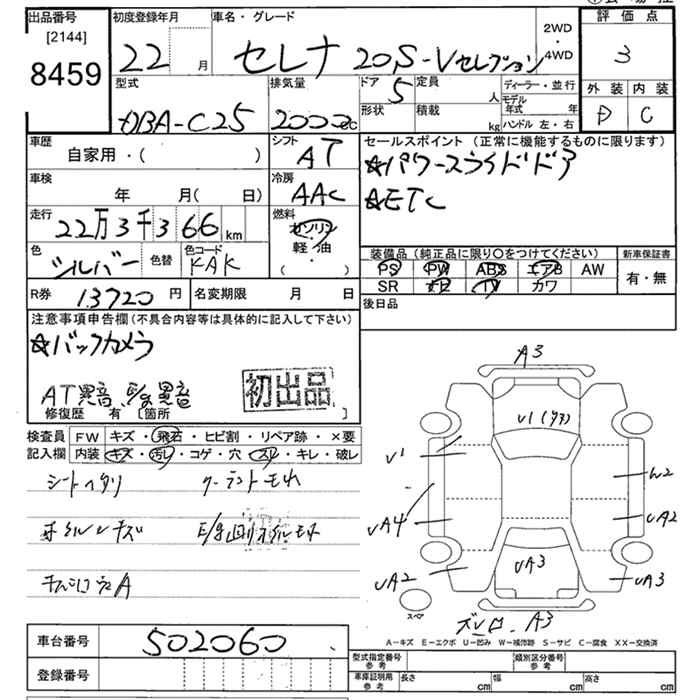 出品番号
[2144]
8459
初度登録年月
22
月
車名・グレード
セレナ 20S-Vセレクション
2WD
・
4WD
評価点
3
外装 内装
D C
型式
DBA-C25
排気量
2000cc
ドア
5
形状
定員
人
積載
kg
ディーラー・並行
モデル
年式
年
ハンドル 左・右
車歴
自家用・( )
シフト
AT
車検
年 月( 日)
冷房
AAC
走行
22万3千366km
燃料
ガソリン
軽/油
( ・ )
色
シルバー
色替
色コード
KAK
R券 13720 円
名変期限 月 日
セールスポイント (正常に機能するものに限ります)
☆パワースライドドア
☆ETC
装備品 (純正品に限り〇をつけてください)
新車保証書
PS PW ABS エアB AW
SR ナビ TV カワ
有・無
後日品
注意事項申告欄 (不具合内容等は具体的に記入して下さい)
☆バックカメラ
AT異音、E/g異音
初出品
修復歴 有 [箇所 ]
検査員
記入欄
FW キズ・飛石・ヒビ割・リペア跡・×要
内装 キズ・汚レ・コゲ・穴・スレ・キレ・破レ
シートヘタリ クーラントモレ
A3
V1
V1
UA4
UA2
W2
UA2
UA3
UA3
スペア
A3
A―キズ E―エクボ U―凹み W―補修跡 S―サビ C―腐食 XX―交換済
車台番号 502060
登録番号
型式指定番号
参考
類別区分番号
参考
車庫証明用
参考
長さ cm 幅 cm 高さ cm